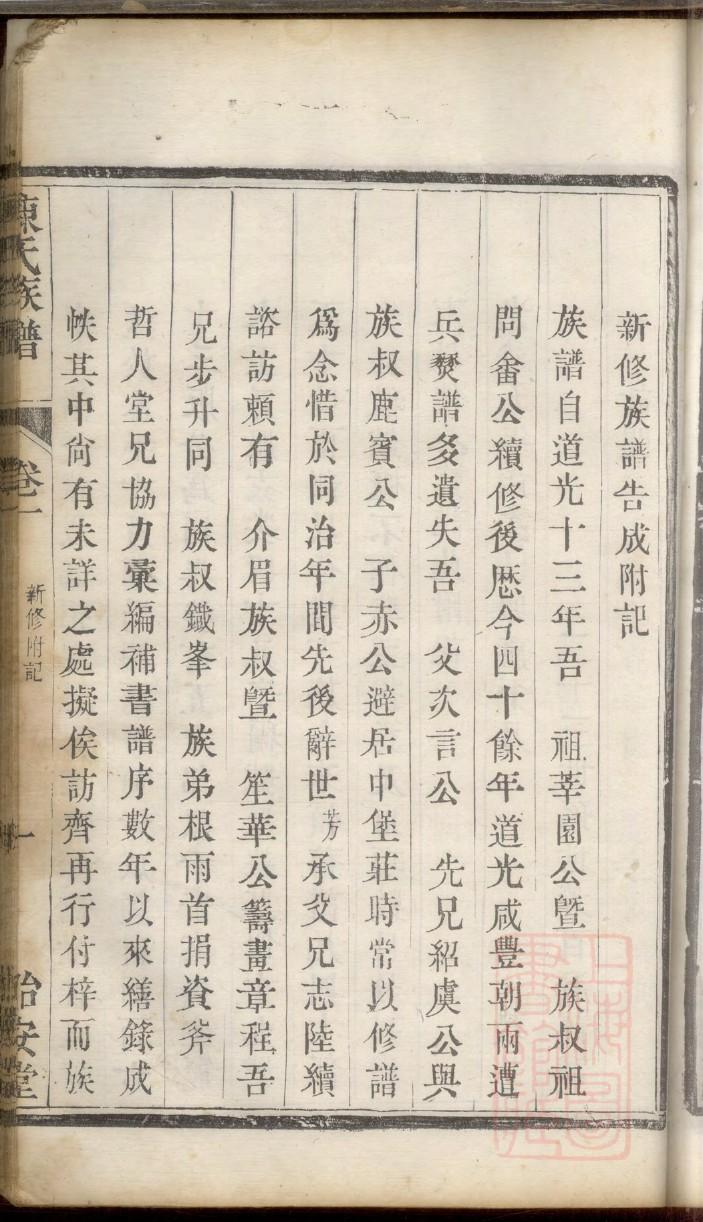 新修族譜告成附記
族譜自道光十三年吾　祖莘園公暨　族叔祖
問畬公續修後歷今四十餘年道光咸豐朝兩遭
兵燹譜多遺失吾　父次言公　先兄紹虞公與
族叔鹿賓公　子赤公避居中堡莊時常以修譜
爲念惜於同治年間先後辭世芳承父兄志陸續
諮訪頼有　介眉族叔暨　笙華公籌畫章程吾
兄步升同　族叔鐵峯　族弟根雨首捐資斧
哲人堂兄協力彙編補書譜序數年以來繕錄成
帙其中尙有未詳之處擬俟訪齊再行付梓而族
陳氏族譜
卷一
新修附記
一
怡安堂